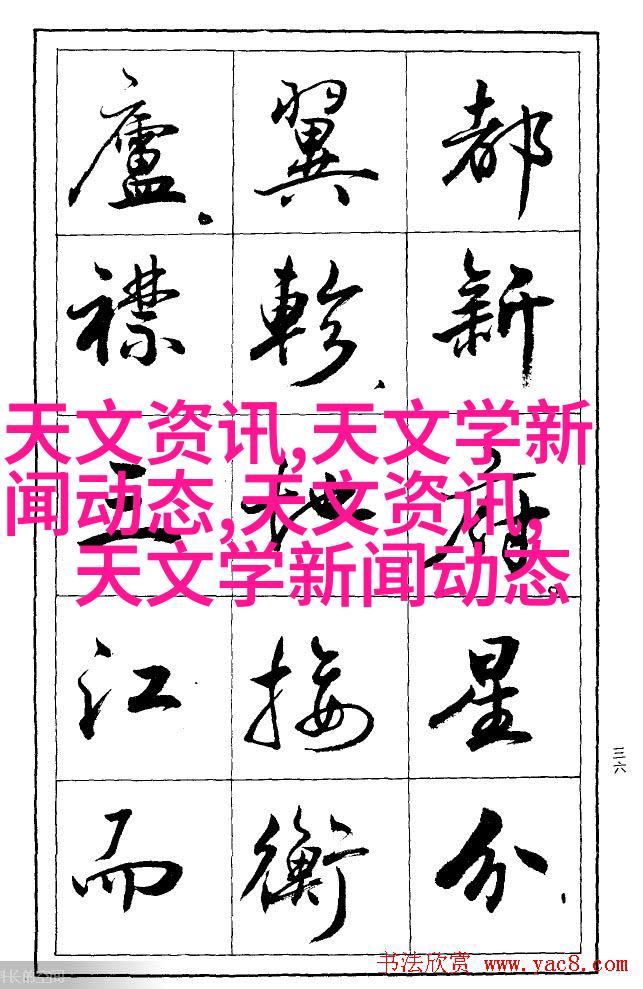 天文资讯,天文学新
闻动态,天文资讯,
天文学新闻动态
都新府。星分、
翼軫、地接衡
廬。襟三江而
三六
书法欣赏 www.yac8.com
长的空间